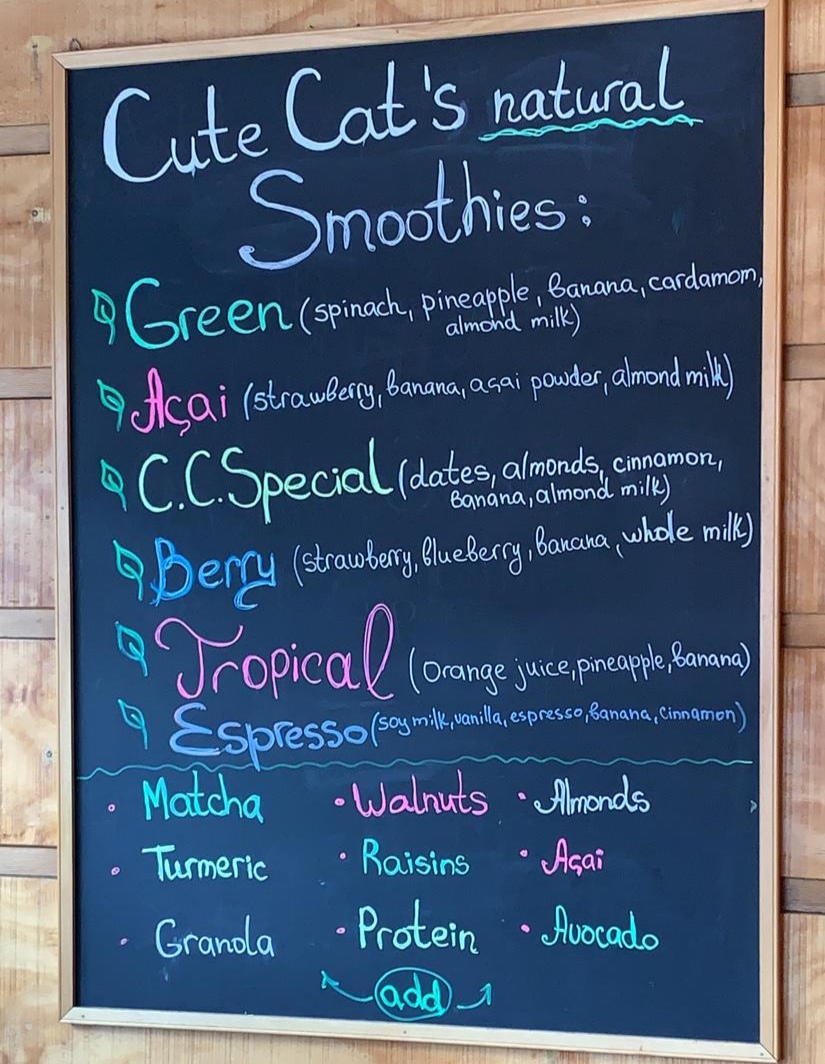 Cute Cat's natural
Smoothies:
Green (spinach, pineapple, banana, cardamom,
almond milk)
Açai (strawberry, banana, açai powder, almond milk)
C.C.Special (dates, almonds, cinnamon,
banana, almond milk)
Berry (strawberry, blueberry, banana, whole milk)
Tropical (orange juice, pineapple, banana)
Espresso (soy milk, vanilla, espresso, banana, cinnamon)
• Matcha • Walnuts • Almonds
• Turmeric • Raisins • Açai
• Granola • Protein • Avocado
add